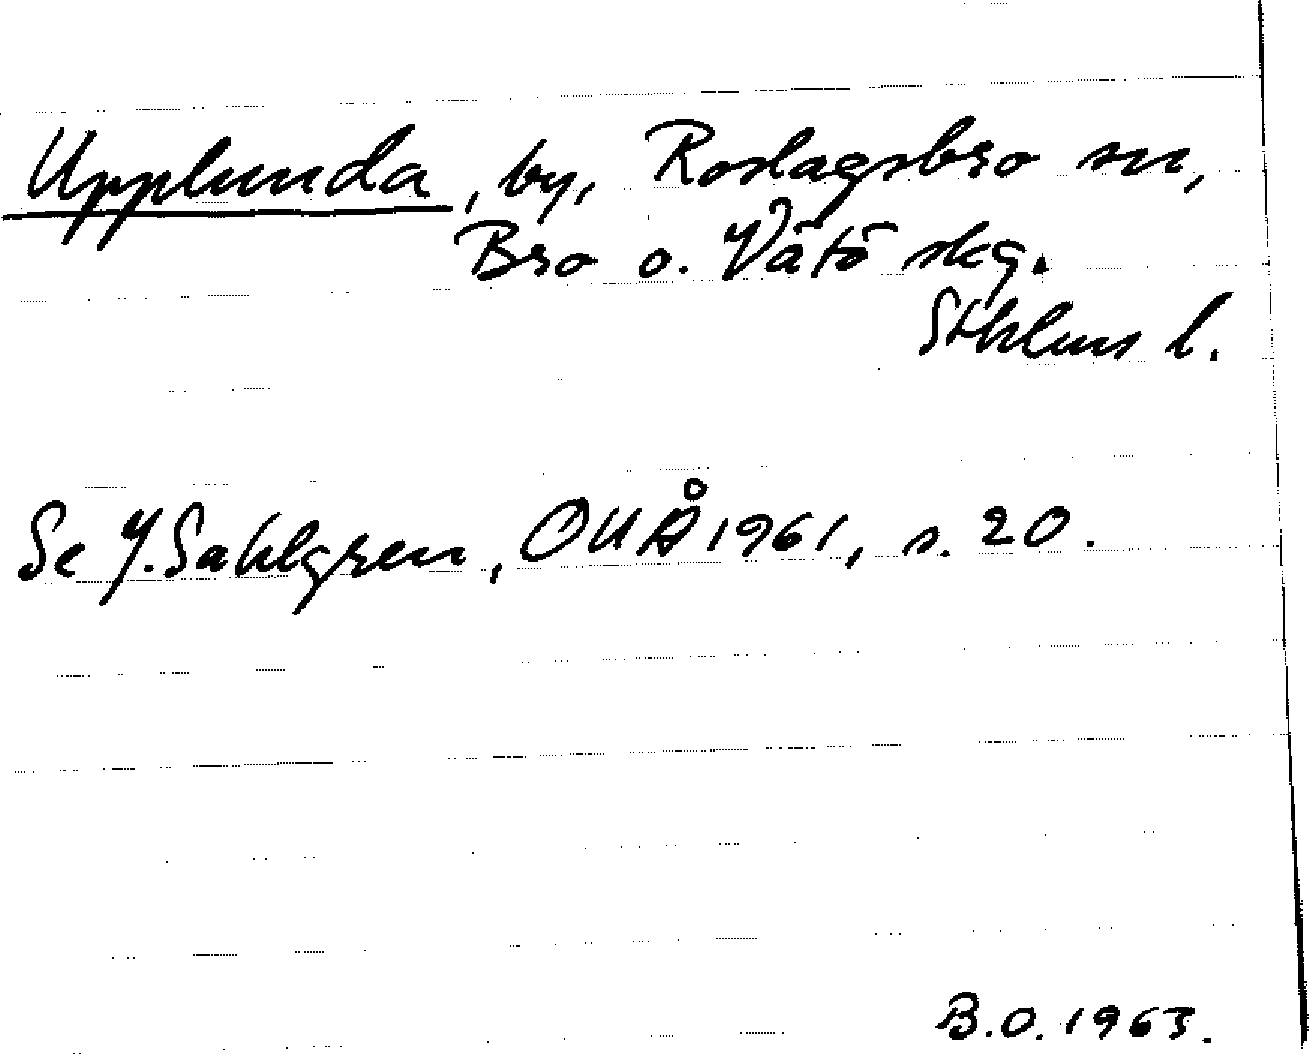 Upplunda, by, Roslagsbro sn,
Bro o. Vätö skg.
Sthlms l.
Se J. Sahlgren, OUÅ 1961, s. 20.
B.O. 1963.